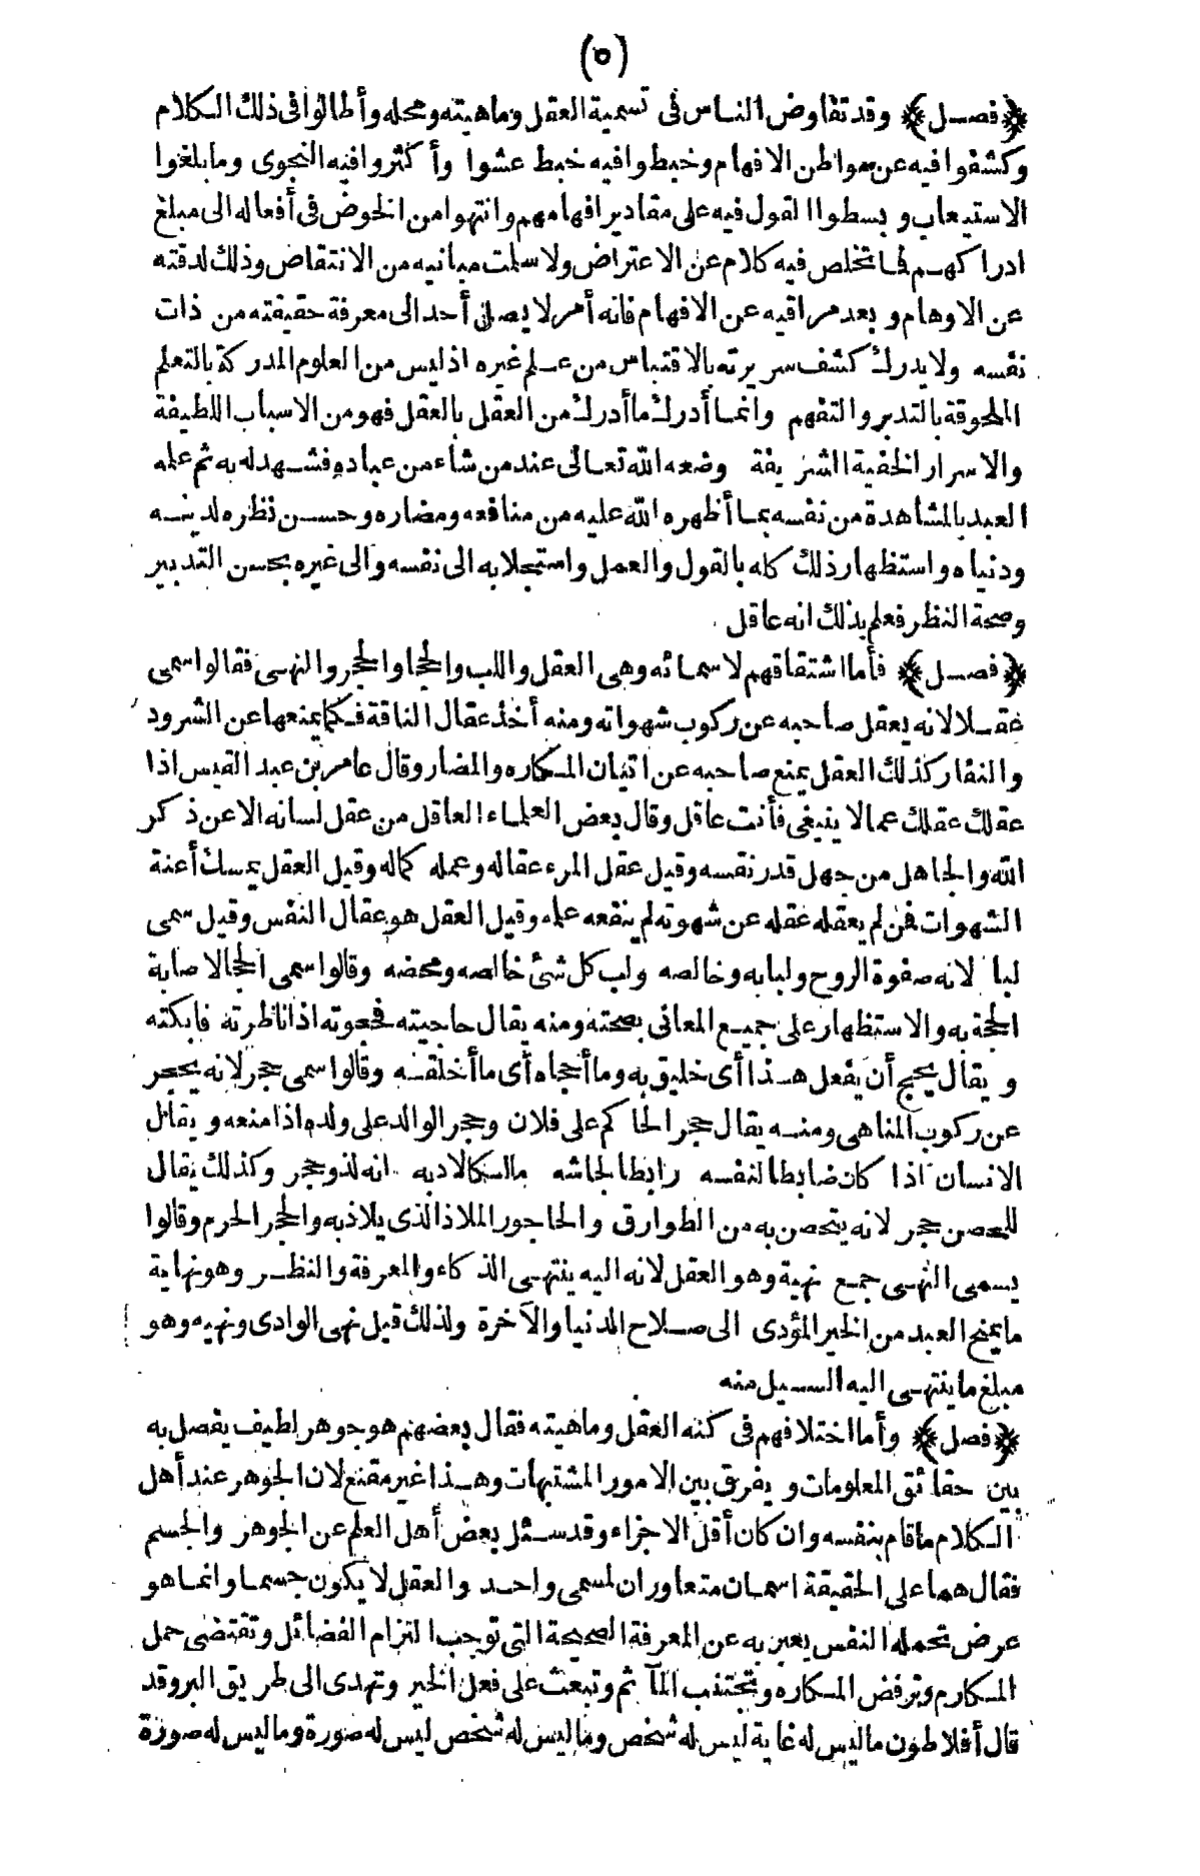 (٥)
﴿فصل﴾ وقد تفاوض الناس فى تسمية العقل وماهيته ومحله وأطالوا فى ذلك الكلام
وكشفوا فيه عن مواطن الافهام وخبطوا فيه خبط عشوا وأكثروا فيه النجوى وما بلغوا
الاستيعاب وبسطوا القول فيه على مقادير افهامهم وانتهوا من الخوض فى أفعاله الى مبلغ
ادراكهم فما تخلص فيه كلام عن الاعتراض ولا سلمت مبانيه من الانتقاض وذلك لدقته
عن الاوهام وبعد مراقيه عن الافهام فانه أمر لا يصل أحد الى معرفة حقيقته من ذات
نفسه ولا يدرك كشف سريرته بالاقتباس من علم غيره اذ ليس من العلوم المدركة بالتعلم
الملحوقة بالتدبر والتفهم وانما أدرك ما أدرك من العقل بالعقل فهو من الاسباب اللطيفة
والاسرار الخفية الشريفة وضعه الله تعالى عند من شاء من عباده فشهد له به ثم علمه
العبد بالمشاهدة من نفسه بما أظهره الله عليه من منافعه ومضاره وحسن نظره لدينه
ودنياه واستظهار ذلك كله بالقول والعمل واستجلابه الى نفسه والى غيره بحسن التدبير
وصحة النظر فعلم بذلك انه عاقل
﴿فصل﴾ فأما اشتقاقهم لاسمائه وهى العقل واللب والحجا والحجر والنهى فقالوا سمى
عقلا لانه يعقل صاحبه عن ركوب شهواته ومنه أخذ عقال الناقة فكما يمنعها عن الشرود
والنفار كذلك العقل يمنع صاحبه عن اتيان المكاره والمضار وقال عامر بن عبد القيس اذا
عقلك عقلك عما لا ينبغى فأنت عاقل وقال بعض العلماء العاقل من عقل لسانه الا عن ذكر
الله والجاهل من جهل قدر نفسه وقيل عقل المرء عقاله وعمله كماله وقيل العقل يمسك أعنة
الشهوات فمن لم يعقله عقله عن شهوته لم ينفعه علمه وقيل العقل هو عقال النفس وقيل سمى
لبا لانه صفوة الروح ولبابه وخالصه ولب كل شئ خالصه ومحضه وقالوا سمى الحجا لاصابة
الحجة به والاستظهار على جميع المعانى بصحته ومنه يقال حاجيته فحجوته اذا ناظرته فابكته
ويقال يحج أن يفعل هذا أى خليق به وما أحجاه أى ما أخلقه وقالوا سمى حجر لانه يحجر
عن ركوب المناهى ومنه يقال حجر الحاكم على فلان وحجر الوالد على ولده اذا منعه ويقال
الانسان اذا كان ضابطا لنفسه رابطا لجاشه مالكا لادبه انه لذو حجر وكذلك يقال
للحصن حجر لانه يتحصن به من الطوارق والحاجور الملاذ الذى يلاذ به والحجر الحرم وقالوا
يسمى النهى جمع نهية وهو العقل لانه اليه ينتهى الذكاء والمعرفة والنظر وهو نهاية
ما يمنح العبد من الخير المؤدى الى صلاح الدنيا والآخرة ولذلك قيل نهى الوادى ونهيه وهو
مبلغ ما ينتهى اليه السيل منه
﴿فصل﴾ وأما اختلافهم فى كنه العقل وماهيته فقال بعضهم هو جوهر لطيف يفصل به
بين حقائق المعلومات ويفرق بين الامور المشتبهات وهذا غير مقنع لان الجوهر عند أهل
الكلام ما قام بنفسه وان كان أقل الاجزاء وقد سئل بعض أهل العلم عن الجوهر والجسم
فقال هما على الحقيقة اسمان متعاوران لمسمى واحد والعقل لا يكون جسما وانما هو
عرض تحمله النفس يعبر به عن المعرفة الصحيحة التى توجب التزام الفضائل وتقتضى حمل
المكارم وترفض المكاره وتجتنب المآثم وتبعث على فعل الخير وتهدى الى طريق البر وقد
قال أفلاطون ما ليس له غاية ليس له شخص وما ليس له شخص ليس له صورة وما ليس له صورة